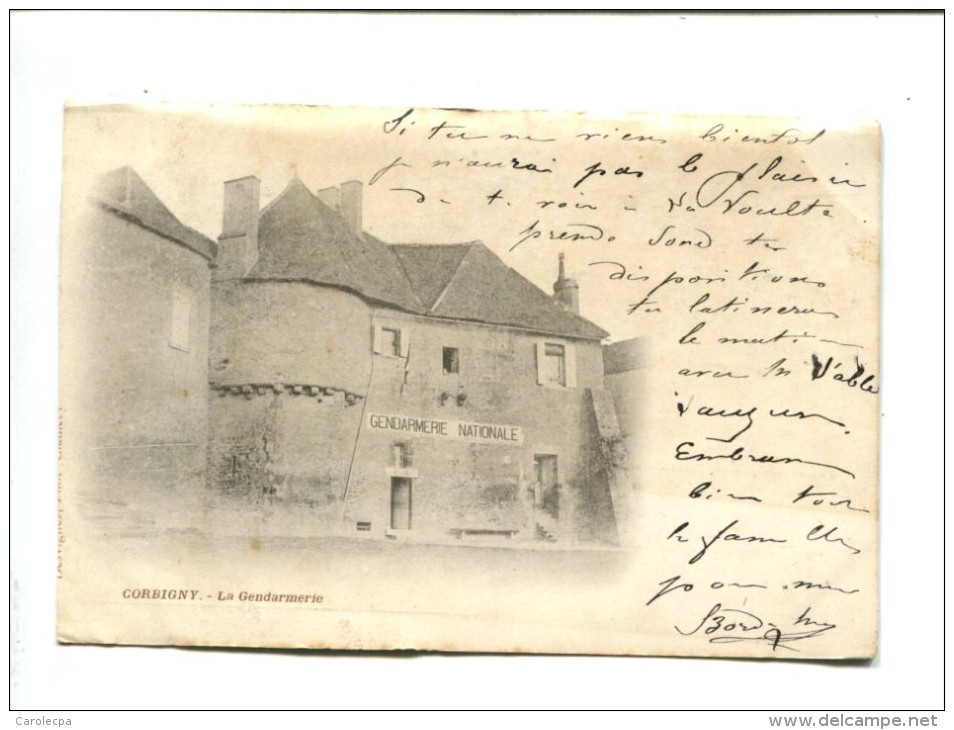 Si tu ne viens bientôt
je n'aurai pas le plaisir
de te voir à La Voulte
prends donc tes
dispositions
tu
le matin
avec
Embrasse
bien toute
la famille
pour moi
GENDARMERIE NATIONALE
CORBIGNY. - La Gendarmerie
Carolecpa
www.delcampe.net